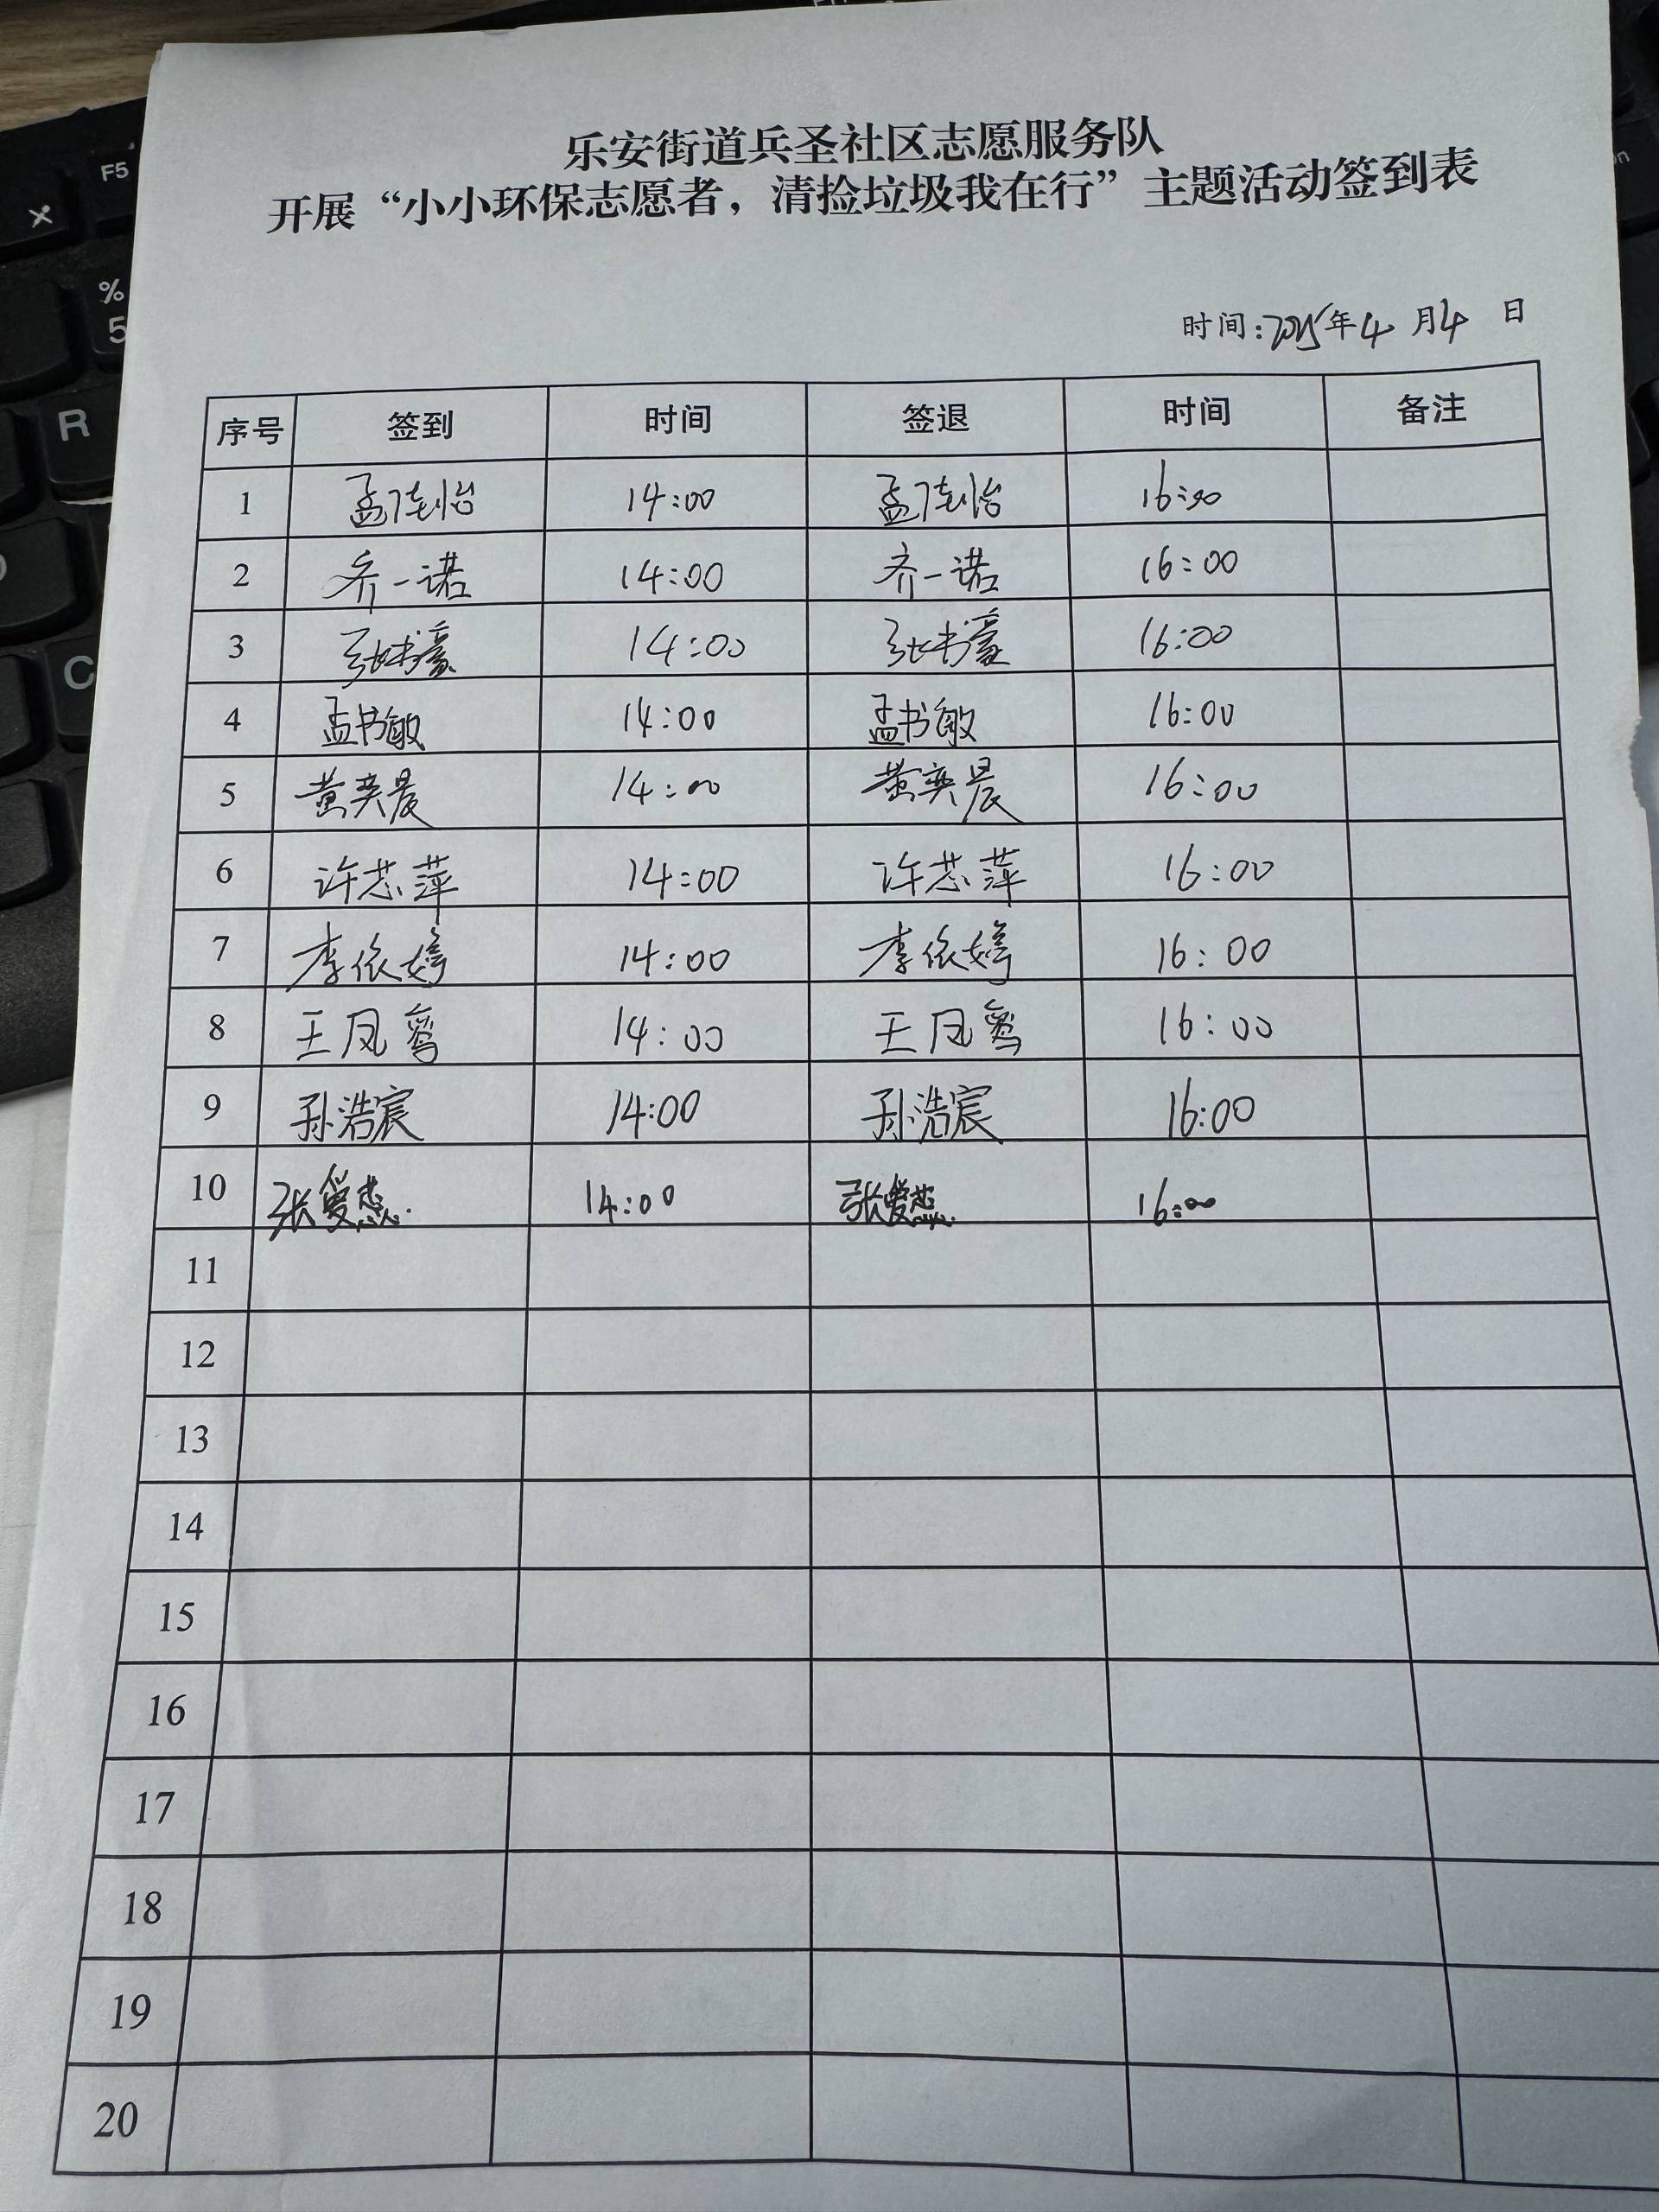 乐安街道兵圣社区志愿服务队
开展“小小环保志愿者，清捡垃圾我在行”主题活动签到表
时间:2025年4月4日
序号 签到 时间 签退 时间 备注
1 孟佳怡 14:00 孟佳怡 16:00
2 齐一诺 14:00 齐一诺 16:00
3 张书豪 14:00 张书豪 16:00
4 孟书敏 14:00 孟书敏 16:00
5 黄奕晨 14:00 黄奕晨 16:00
6 许芯萍 14:00 许芯萍 16:00
7 李依婷 14:00 李依婷 16:00
8 王凤 14:00 王凤 16:00
9 孙浩宸 14:00 孙浩宸 16:00
10 张爱 14:00 张爱 16:00
11
12
13
14
15
16
17
18
19
20
F5
%
5
R
C